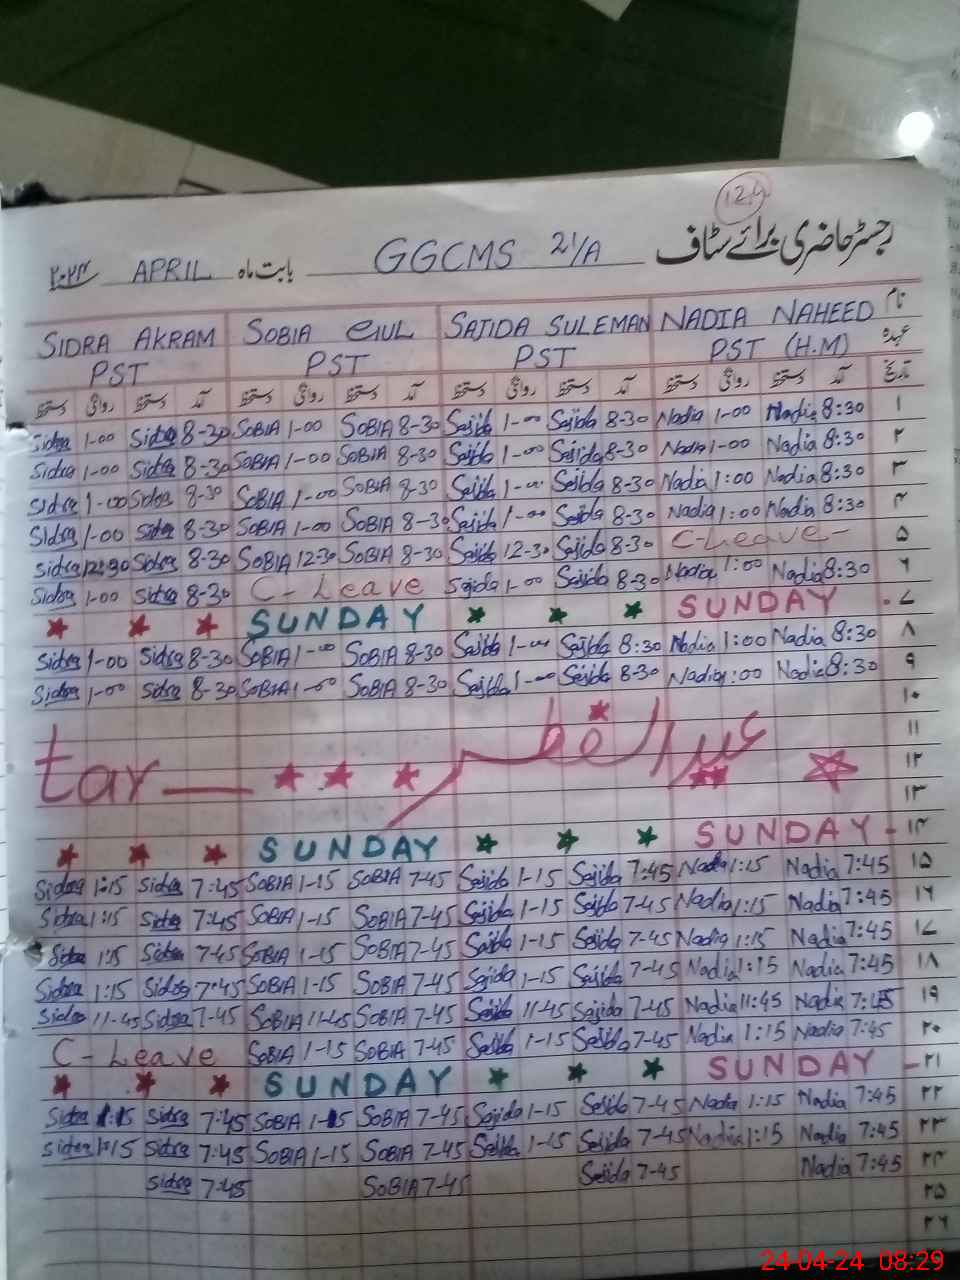 124
رجسٹر حاضری برائے سٹاف GGCMS 21/A بابت ماہ APRIL ۲۰۲۴
نام SIDRA AKRAM SOBIA SAJIDA SULEMAN NADIA NAHEED
عہدہ PST PST PST PST (H.M)
تاریخ آمد دستخط روانگی دستخط آمد دستخط روانگی دستخط آمد دستخط روانگی دستخط آمد دستخط روانگی دستخط
Sidra 1-00 Sidra 8-30 SOBIA 1-00 SOBIA 8-30 Sajida 1-00 Sajida 8-30 Nadia 1-00 Nadia 8:30 ۱
Sidra 1-00 Sidra 8-30 SOBIA 1-00 SOBIA 8-30 Sajida 1-00 Sajida 8-30 Nadia 1-00 Nadia 8:30 ۲
Sidra 1-00 Sidra 8-30 SOBIA 1-00 SOBIA 8-30 Sajida 1-00 Sajida 8-30 Nadia 1:00 Nadia 8:30 ۳
Sidra 1-00 Sidra 8-30 SOBIA 1-00 SOBIA 8-30 Sajida 1-00 Sajida 8-30 Nadia 1:00 Nadia 8:30 ۴
Sidra 12:30 Sidra 8-30 SOBIA 12-30 SOBIA 8-30 Sajida 12-30 Sajida 8-30 C-Leave- ۵
Sidra 1-00 Sidra 8-30 C-Leave Sajida 1-00 Sajida 8-30 Nadia 1:00 Nadia 8:30 ۶
SUNDAY SUNDAY ۷
Sidra 1-00 Sidra 8-30 SOBIA 1-00 SOBIA 8-30 Sajida 1-00 Sajida 8:30 Nadia 1:00 Nadia 8:30 ۸
Sidra 1-00 Sidra 8-30 SOBIA 1-00 SOBIA 8-30 Sajida 1-00 Sajida 8-30 Nadia 1:00 Nadia 8:30 ۹
۱۰
۱۱
tar عید الفطر ۱۲
۱۳
SUNDAY SUNDAY - ۱۴
Sidra 1:15 Sidra 7:45 SOBIA 1-15 SOBIA 7-45 Sajida 1-15 Sajida 7:45 Nadia 1:15 Nadia 7:45 ۱۵
Sidra 1:15 Sidra 7:45 SOBIA 1-15 SOBIA 7-45 Sajida 1-15 Sajida 7-45 Nadia 1:15 Nadia 7:45 ۱۶
Sidra 1:15 Sidra 7-45 SOBIA 1-15 SOBIA 7-45 Sajida 1-15 Sajida 7-45 Nadia 1:15 Nadia 7:45 ۱۷
Sidra 1:15 Sidra 7:45 SOBIA 1-15 SOBIA 7-45 Sajida 1-15 Sajida 7-45 Nadia 1:15 Nadia 7:45 ۱۸
Sidra 11-45 Sidra 7-45 SOBIA 11-45 SOBIA 7-45 Sajida 11-45 Sajida 7-45 Nadia 11:45 Nadia 7:45 ۱۹
C-Leave SOBIA 1-15 SOBIA 7-45 Sajida 1-15 Sajida 7-45 Nadia 1:15 Nadia 7:45 ۲۰
SUNDAY SUNDAY - ۲۱
Sidra 1:15 Sidra 7:45 SOBIA 1-15 SOBIA 7-45 Sajida 1-15 Sajida 7-45 Nadia 1:15 Nadia 7:45 ۲۲
Sidra 1:15 Sidra 7:45 SOBIA 1-15 SOBIA 7-45 Sajida 1-15 Sajida 7-45 Nadia 1:15 Nadia 7:45 ۲۳
Sidra 7:45 SOBIA 7-45 Sajida 7-45 Nadia 7:45 ۲۴
۲۵
۲۶
24-04-24 08:29